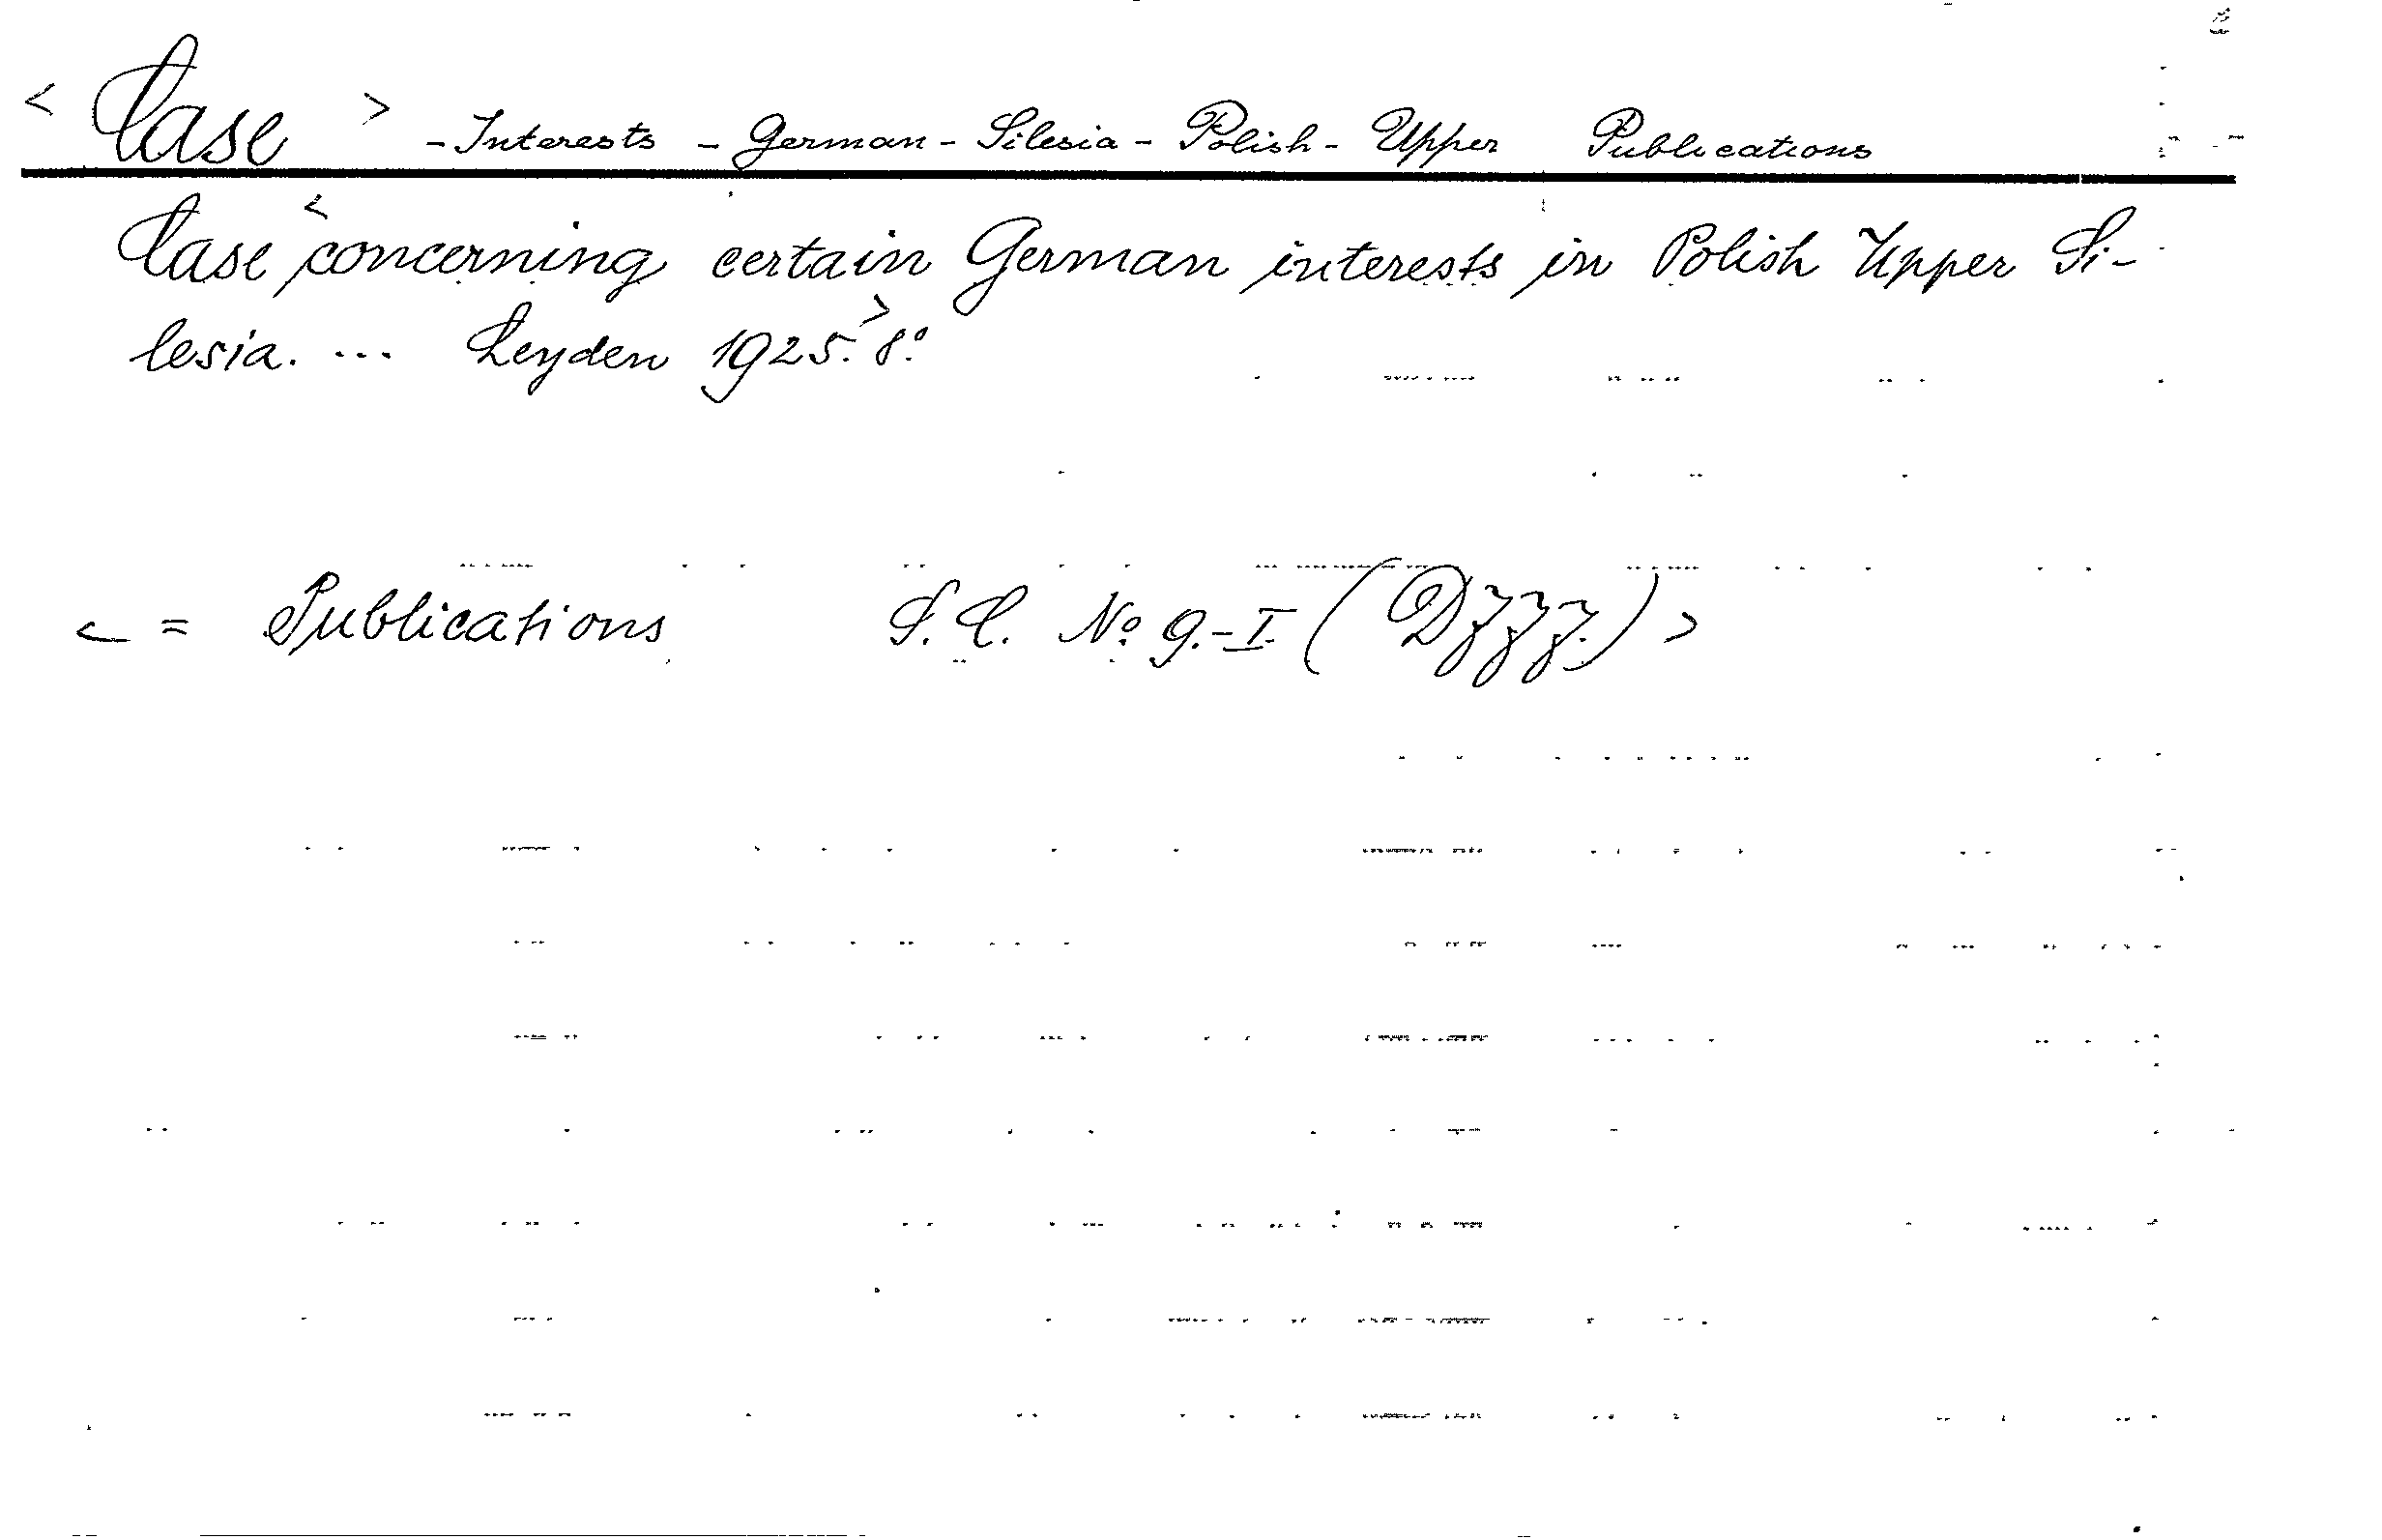 < Case > - Interests - German - Silesia - Polish - Upper Publications
Case < concerning certain German interests in Polish Upper Si-
lesia. ... Leyden 1925. > 8º.
< = Publications S. C. Nº 9.-I. ( Dzzz. ) >